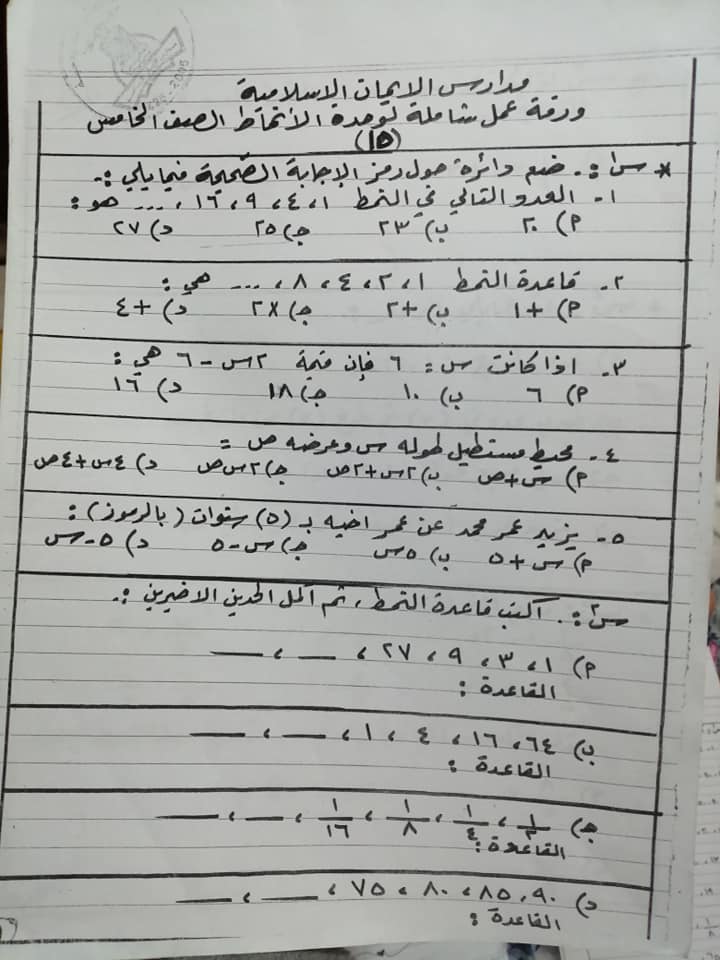 مدارس الإيمان الإسلامية
ورقة عمل شاملة لوحدة الأنماط الصف الخامس
(١٥)
* س١: ضع دائرة حول رمز الإجابة الصحيحة فيما يلي:
١- العدد التالي في النمط ١، ٤، ٩، ١٦، ... هو:
أ) ٢٠ ب) ٢٣ ج) ٢٥ د) ٢٧
٢- قاعدة النمط ١، ٢، ٤، ٨، ... هي:
أ) +١ ب) +٢ ج) ×٢ د) +٤
٣- اذا كانت س = ٦ فإن قيمة ٢س - ٦ هي:
أ) ٦ ب) ١٠ ج) ١٨ د) ١٦
٤- محيط مستطيل طوله س وعرضه ص =
أ) س+ص ب) ٢س+٢ص ج) ٢س ص د) ٤س+٤ص
٥- يزيد عمر محمد عن عمر اخيه بـ (٥) سنوات (بالرموز):
أ) س+٥ ب) ٥س ج) س-٥ د) ٥-س
س٢: اكتب قاعدة النمط، ثم أكمل الحدين الاخيرين:
أ) ١، ٣، ٩، ٢٧، ــــ، ــــ
القاعدة:
ب) ٦٤، ١٦، ٤، ١، ــــ، ــــ
القاعدة:
ج) ١/٢، ١/٤، ١/٨، ١/١٦، ــــ، ــــ
القاعدة:
د) ٩٠، ٨٥، ٨٠، ٧٥، ــــ، ــــ
القاعدة: